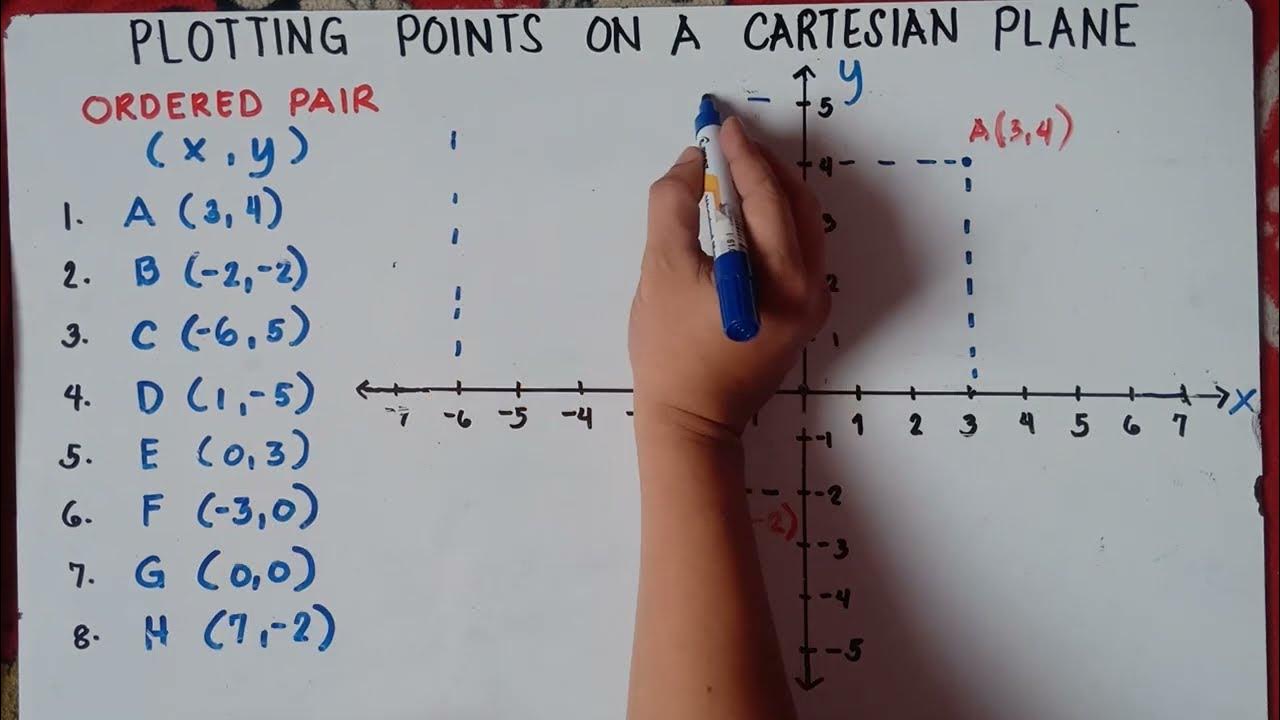 PLOTTING POINTS ON A CARTESIAN PLANE
ORDERED PAIR
(x, y)
1. A (3, 4)
2. B (-2, -2)
3. C (-6, 5)
4. D (1, -5)
5. E (0, 3)
6. F (-3, 0)
7. G (0,0)
8. H (7, -2)
y
5
A(3,4)
4
3
2
1
x
-7 -6 -5 -4 1 2 3 4 5 6 7
-1
-2
-2)
-3
-4
-5